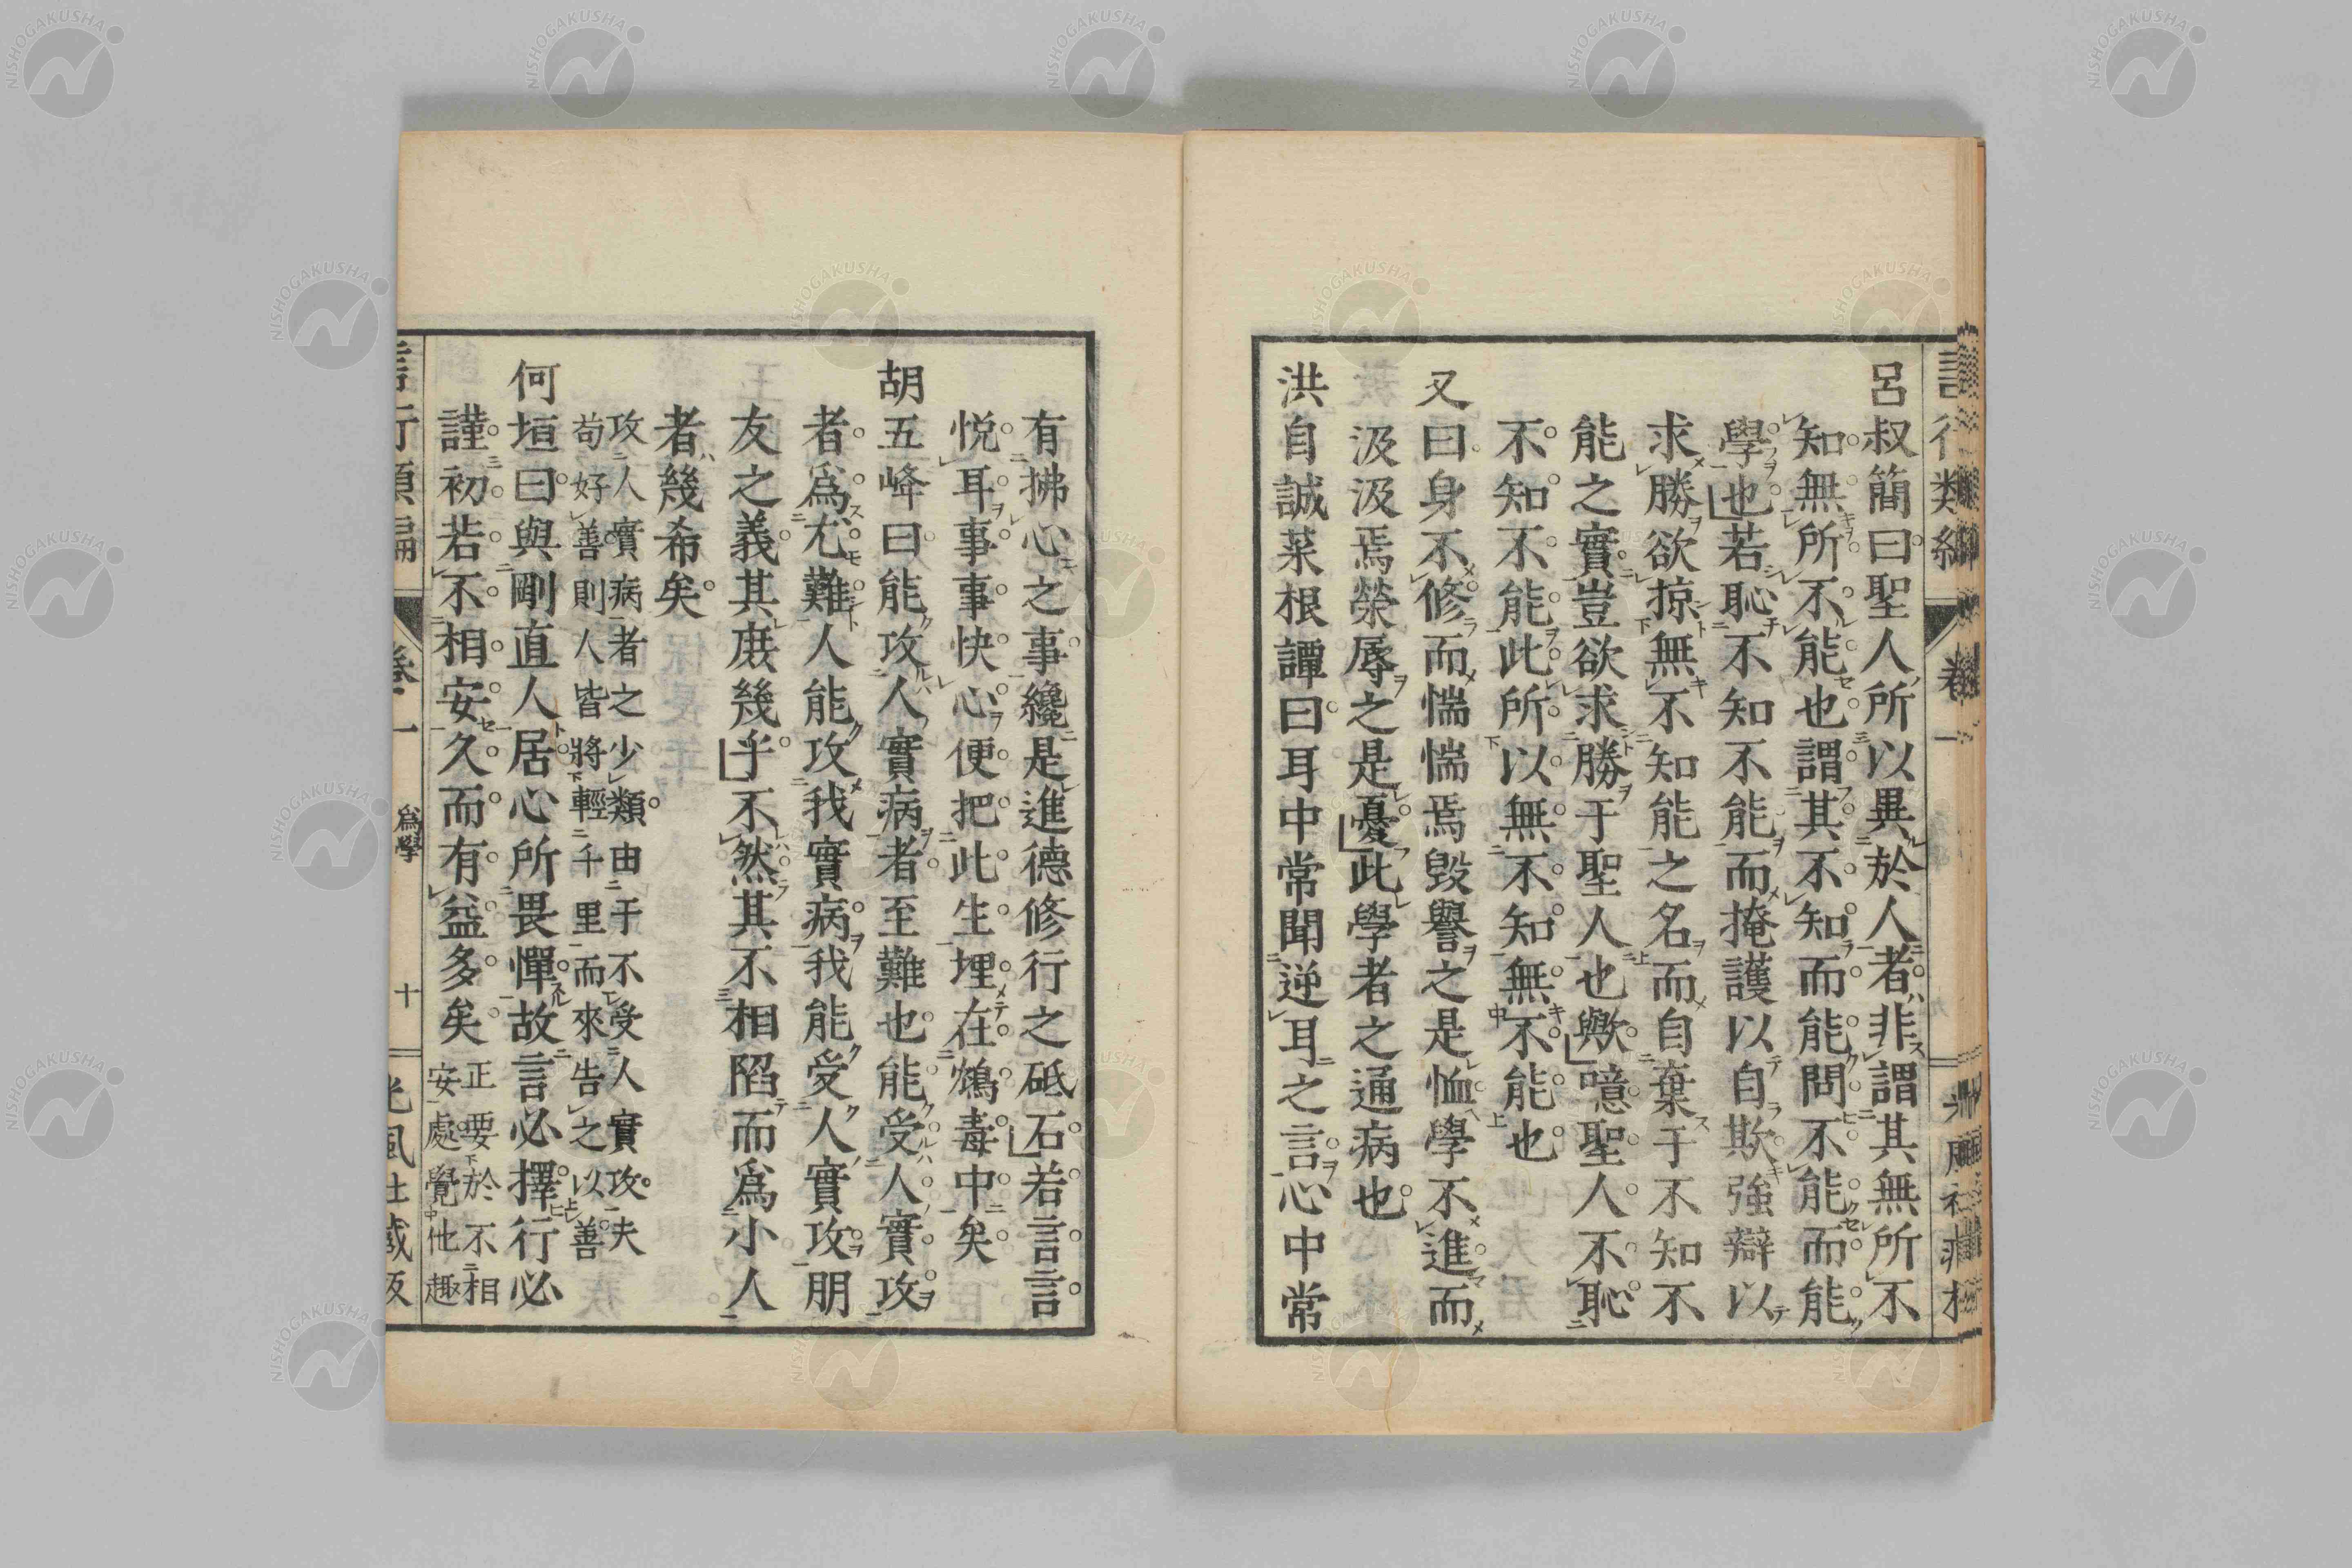 呂叔簡曰聖人所以異於人者非謂其無所不
知無所不能也謂其不知而能問不能而能
學也若恥不知不能而掩護以自欺強辯以
求勝欲掠無不知能之名而自棄于不知不
能之實豈欲求勝于聖人也歟噫聖人不恥
不知不能此所以無不知無不能也
又曰身不修而惴惴焉毀譽之是恤學不進而
汲汲焉榮辱之是憂此學者之通病也
洪自誠菜根譚曰耳中常聞逆耳之言心中常
有拂心之事纔是進德修行之砥石若言言
悅耳事事快心便把此生埋在鴆毒中矣
胡五峰曰能攻人實病者至難也能受人實攻
者爲尤難人能攻我實病我能受人實攻朋
友之義其庶幾乎不然其不相陷而爲小人
者幾希矣
攻人實病者之少類由于不受人實攻夫
苟好善則人皆將輕千里而來告之以善
何垣曰與剛直人居心所畏憚故言必擇行必
謹初若不相安久而有益多矣
正要於不相
安處覺他趣
言行類編
卷一
爲學
十
NISHOGAKUSHA